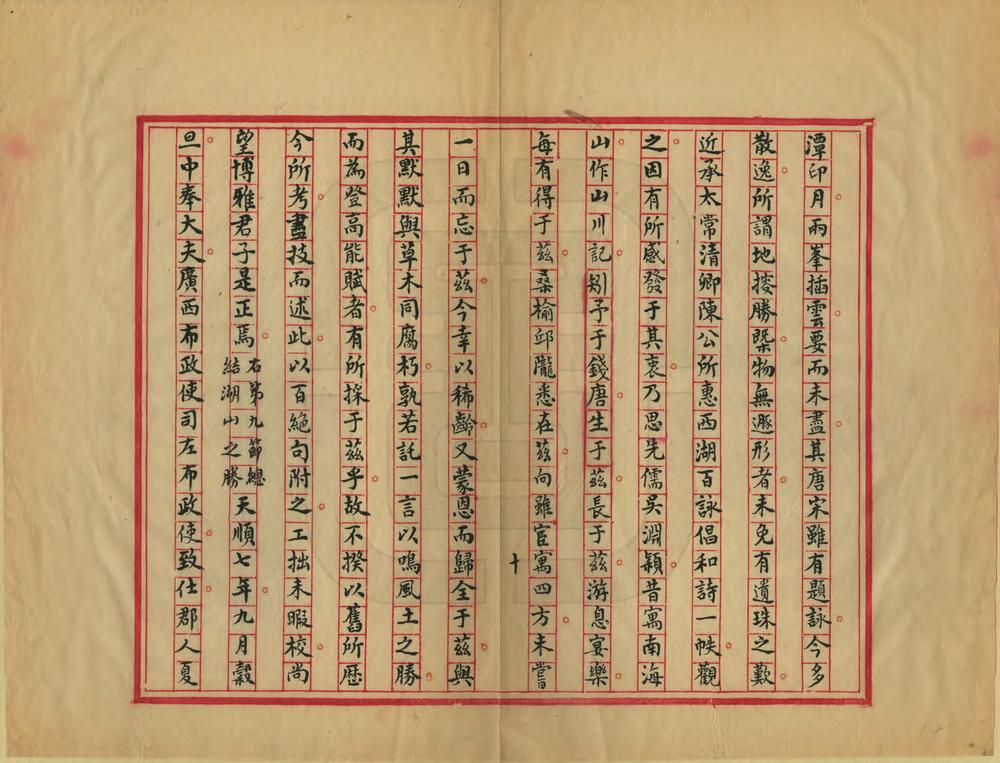 潭印月兩峯插雲要而未盡其唐宋雖有題詠今多
散逸所謂地揜勝槩物無遯形者未免有遺珠之歎
近承太常清卿陳公所惠西湖百詠倡和詩一帙觀
之因有所感發于其衷乃思先儒吳淵穎昔寓南海
山作山川記矧予于錢唐生于茲長于茲游息宴樂
每有得于茲桑榆邱隴悉在茲向雖宦寓四方未嘗
十
一日而忘于茲今幸以稀齡又蒙恩而歸全于茲與
其默默與草木同腐朽孰若託一言以鳴風土之勝
而為登高能賦者有所採于茲乎故不揆以舊所歷
今所考盡技而述此以百絕句附之工拙未暇校尚
望博雅君子是正焉右第九節總結湖山之勝天順七年九月穀
旦中奉大夫廣西布政使司左布政使致仕郡人夏